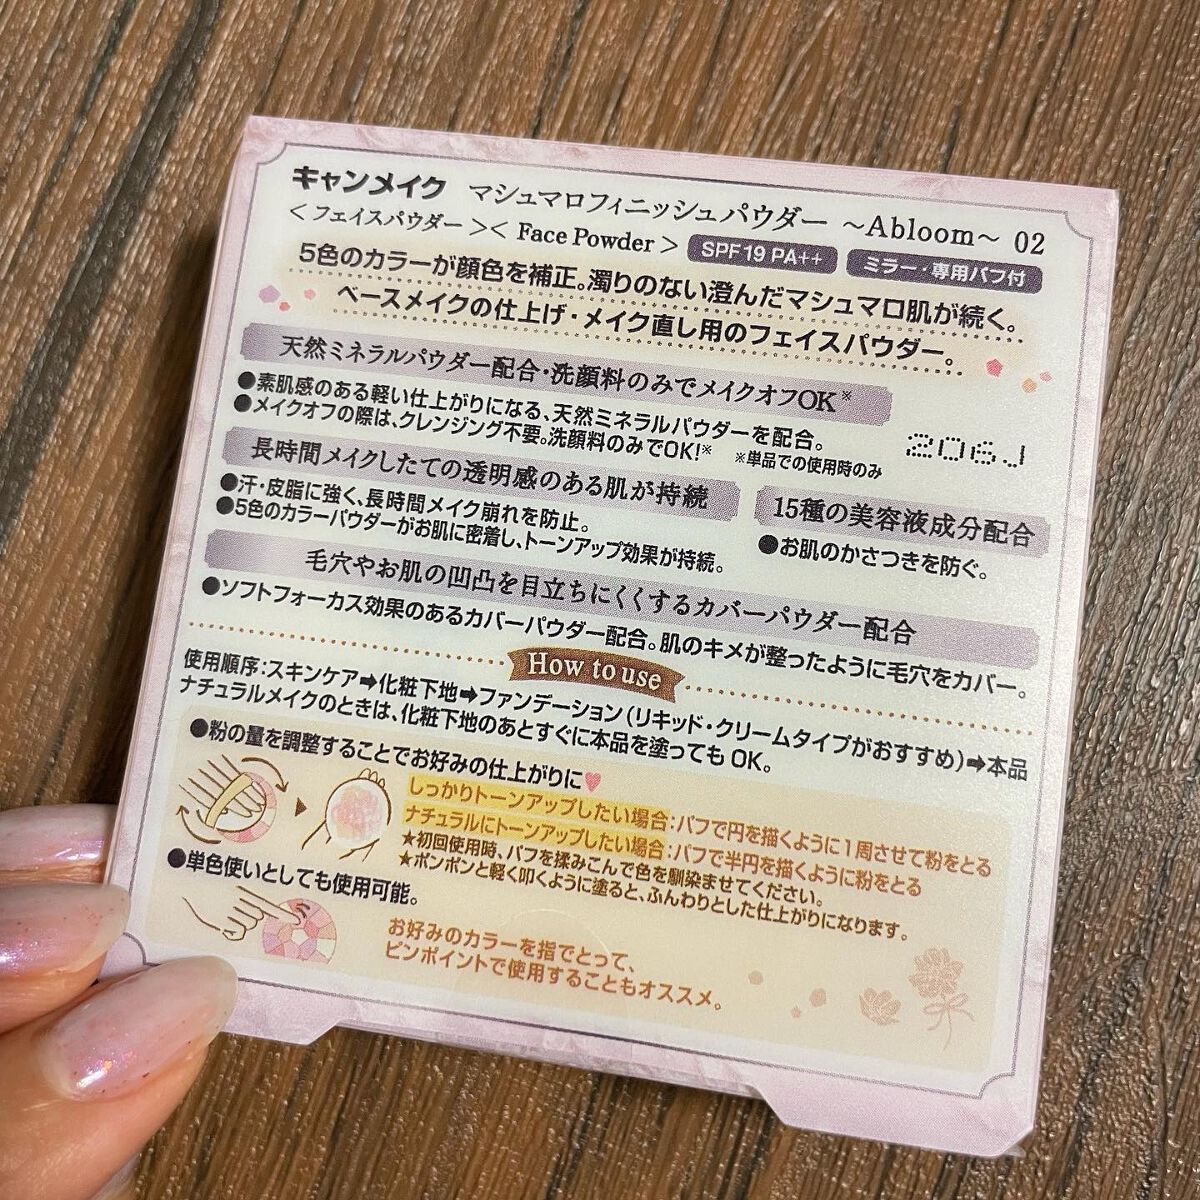 キャンメイク マシュマロフィニッシュパウダー ～Abloom～ 02
＜フェイスパウダー＞＜ Face Powder ＞ SPF19 PA++ ミラー・専用パフ付
5色のカラーが顔色を補正。濁りのない澄んだマシュマロ肌が続く。
ベースメイクの仕上げ・メイク直し用のフェイスパウダー。
天然ミネラルパウダー配合・洗顔料のみでメイクオフOK※
●素肌感のある軽い仕上がりになる、天然ミネラルパウダーを配合。
●メイクオフの際は、クレンジング不要。洗顔料のみでOK!※ ※単品での使用時のみ
206J
長時間メイクしたての透明感のある肌が持続
●汗・皮脂に強く、長時間メイク崩れを防止。
●5色のカラーパウダーがお肌に密着し、トーンアップ効果が持続。
15種の美容液成分配合
●お肌のかさつきを防ぐ。
毛穴やお肌の凹凸を目立ちにくくするカバーパウダー配合
●ソフトフォーカス効果のあるカバーパウダー配合。肌のキメが整ったように毛穴をカバー。
How to use
使用順序:スキンケア➡化粧下地➡ファンデーション(リキッド・クリームタイプがおすすめ)➡本品
ナチュラルメイクのときは、化粧下地のあとすぐに本品を塗っても OK。
●粉の量を調整することでお好みの仕上がりに♥
しっかりトーンアップしたい場合:パフで円を描くように1周させて粉をとる
ナチュラルにトーンアップしたい場合:パフで半円を描くように粉をとる
★初回使用時、パフを揉みこんで色を馴染ませてください。
★ポンポンと軽く叩くように塗ると、ふんわりとした仕上がりになります。
●単色使いとしても使用可能。
お好みのカラーを指でとって、
ピンポイントで使用することもオススメ。